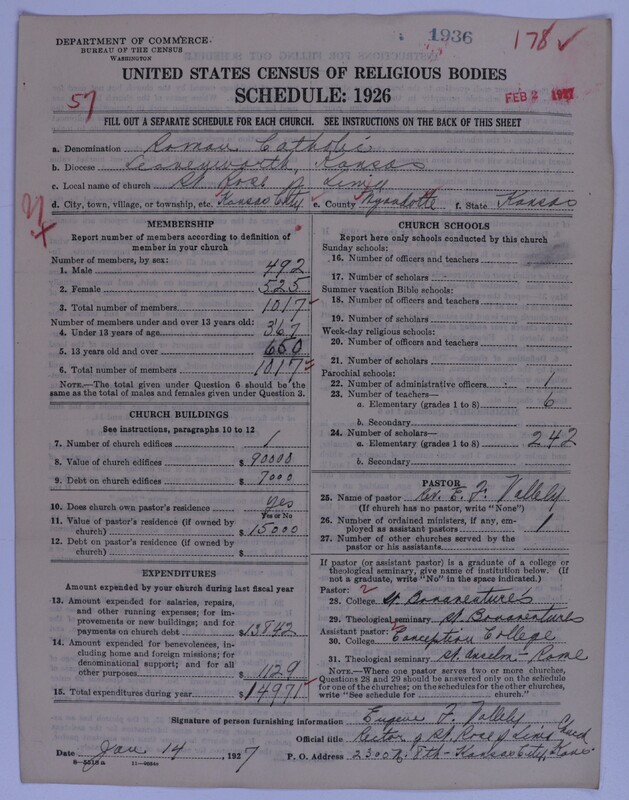 DEPARTMENT OF COMMERCE
BUREAU OF THE CENSUS
WASHINGTON
1936
178 ✓
UNITED STATES CENSUS OF RELIGIOUS BODIES
SCHEDULE: 1926
57
FEB 2 1927
FILL OUT A SEPARATE SCHEDULE FOR EACH CHURCH. SEE INSTRUCTIONS ON THE BACK OF THIS SHEET
a. Denomination Roman Catholic
b. Diocese Leavenworth, Kansas
c. Local name of church St Rose of Lima
d. City, town, village, or township, etc. Kansas City e. County Wyandotte f. State Kansas
MEMBERSHIP
Report number of members according to definition of
member in your church
Number of members, by sex:
1. Male 492
2. Female 525
3. Total number of members 1017
Number of members under and over 13 years old:
4. Under 13 years of age 367
5. 13 years old and over 650
6. Total number of members 1017
NOTE.—The total given under Question 6 should be
same as the total of males and females given under Question 3.
CHURCH BUILDINGS
See instructions, paragraphs 10 to 12
7. Number of church edifices 1
8. Value of church edifices $ 90000
9. Debt on church edifices $ 7000
10. Does church own pastor's residence yes
Yes or No
11. Value of pastor's residence (if owned by
church) $ 15000
12. Debt on pastor's residence (if owned by
church) $
EXPENDITURES
Amount expended by your church during last fiscal year
13. Amount expended for salaries, repairs,
and other running expenses; for im-
provements or new buildings; and for
payments on church debt $ 13842
14. Amount expended for benevolences, in-
cluding home and foreign missions; for
denominational support; and for all
other purposes 1129
15. Total expenditures during year $ 14971
CHURCH SCHOOLS
Report here only schools conducted by this church
Sunday schools:
16. Number of officers and teachers
17. Number of scholars
Summer vacation Bible schools:
18. Number of officers and teachers
19. Number of scholars
Week-day religious schools:
20. Number of officers and teachers
21. Number of scholars
Parochial schools:
22. Number of administrative officers 1
23. Number of teachers—
a. Elementary (grades 1 to 8) 6
b. Secondary
24. Number of scholars—
a. Elementary (grades 1 to 8) 242
b. Secondary
PASTOR
25. Name of pastor Rev. E. F. Vallely
(If church has no pastor, write "None")
26. Number of ordained ministers, if any, em-
ployed as assistant pastors 1
27. Number of other churches served by the
pastor or his assistants
If pastor (or assistant pastor) is a graduate of a college or
theological seminary, give name of institution below. (If
not a graduate, write "No" in the space indicated.)
Pastor:
28. College St Bonaventure's
29. Theological seminary St. Bonaventures
Assistant pastor:
30. College Conception College
31. Theological seminary St. Anselm - Rome
NOTE.—Where one pastor serves two or more churches,
Questions 28 and 29 should be answered only on the schedule
for one of the churches; on the schedules for the other churches,
write "See schedule for church."
Signature of person furnishing information Eugene F. Vallely
Official title Rector of St Rose of Lima Church
Date Jan 14, 1927 P. O. Address 2300 N. 8th - Kansas City, Kans.
8—5518a